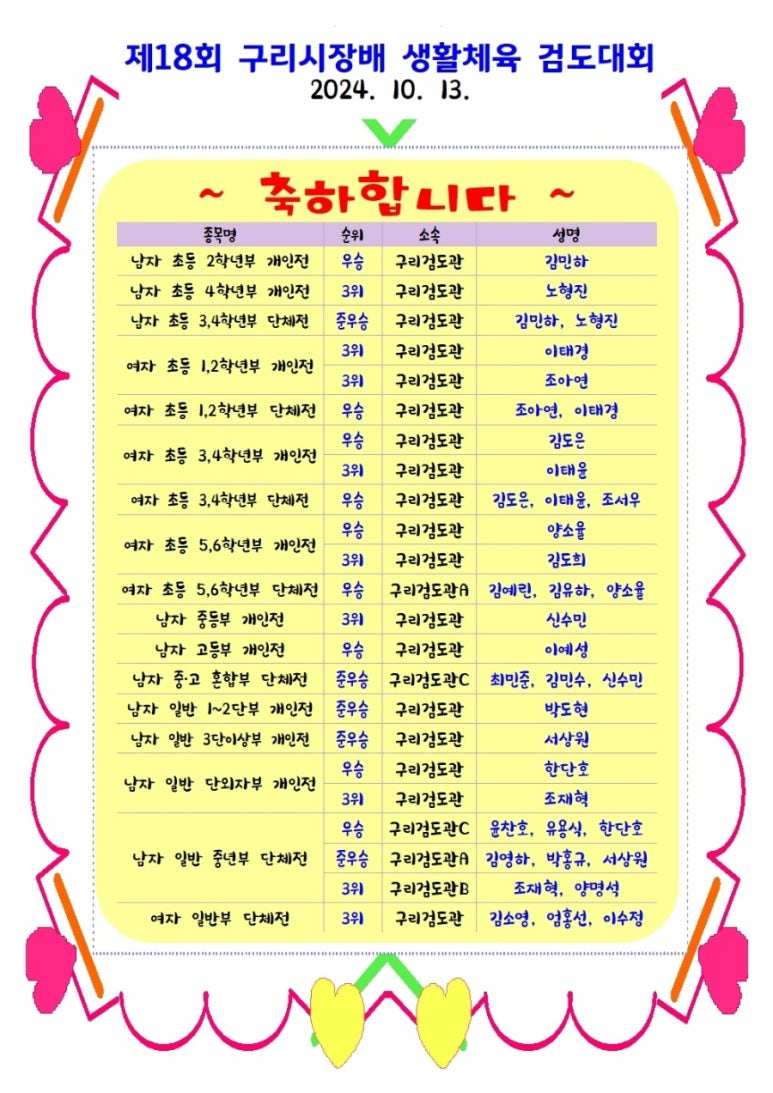 제18회 구리시장배 생활체육 검도대회
2024. 10. 13.
~ 축하합니다 ~
종목명 순위 소속 성명
남자 초등 2학년부 개인전 우승 구리검도관 김민하
남자 초등 4학년부 개인전 3위 구리검도관 노형진
남자 초등 3,4학년부 단체전 준우승 구리검도관 김민하, 노형진
여자 초등 1,2학년부 개인전 3위 구리검도관 이태경
3위 구리검도관 조아연
여자 초등 1,2학년부 단체전 우승 구리검도관 조아연, 이태경
여자 초등 3,4학년부 개인전 우승 구리검도관 김도은
3위 구리검도관 이태윤
여자 초등 3,4학년부 단체전 우승 구리검도관 김도은, 이태윤, 조서우
여자 초등 5,6학년부 개인전 우승 구리검도관 양소율
3위 구리검도관 김도희
여자 초등 5,6학년부 단체전 우승 구리검도관A 김예린, 김유하, 양소율
남자 중등부 개인전 3위 구리검도관 신수민
남자 고등부 개인전 우승 구리검도관 이예성
남자 중·고 혼합부 단체전 준우승 구리검도관C 최민준, 김민수, 신수민
남자 일반 1~2단부 개인전 준우승 구리검도관 박도현
남자 일반 3단이상부 개인전 준우승 구리검도관 서상원
남자 일반 단외자부 개인전 우승 구리검도관 한단호
3위 구리검도관 조재혁
남자 일반 중년부 단체전 우승 구리검도관C 윤찬호, 유용식, 한단호
준우승 구리검도관A 김영하, 박홍규, 서상원
3위 구리검도관B 조재혁, 양명석
여자 일반부 단체전 3위 구리검도관 김소영, 엄홍선, 이수정